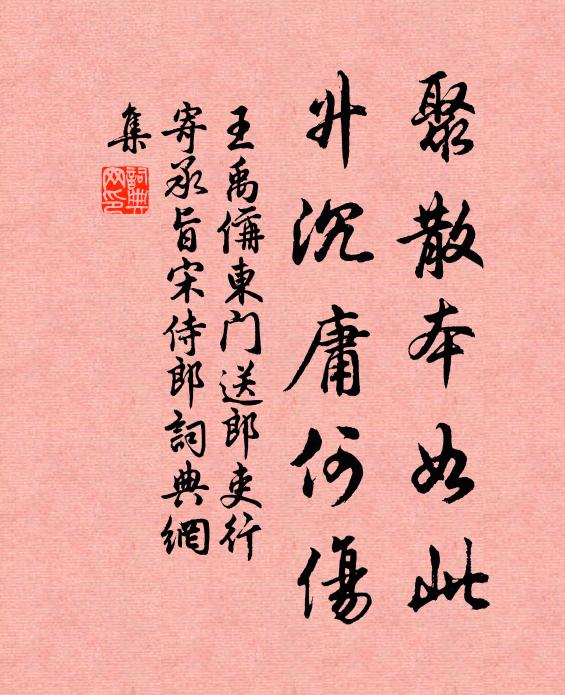 聚散本如此
升沉庸何傷
王禹偁東门送郎吏行
寄承旨宋侍郎詞典網
集
詞典网印